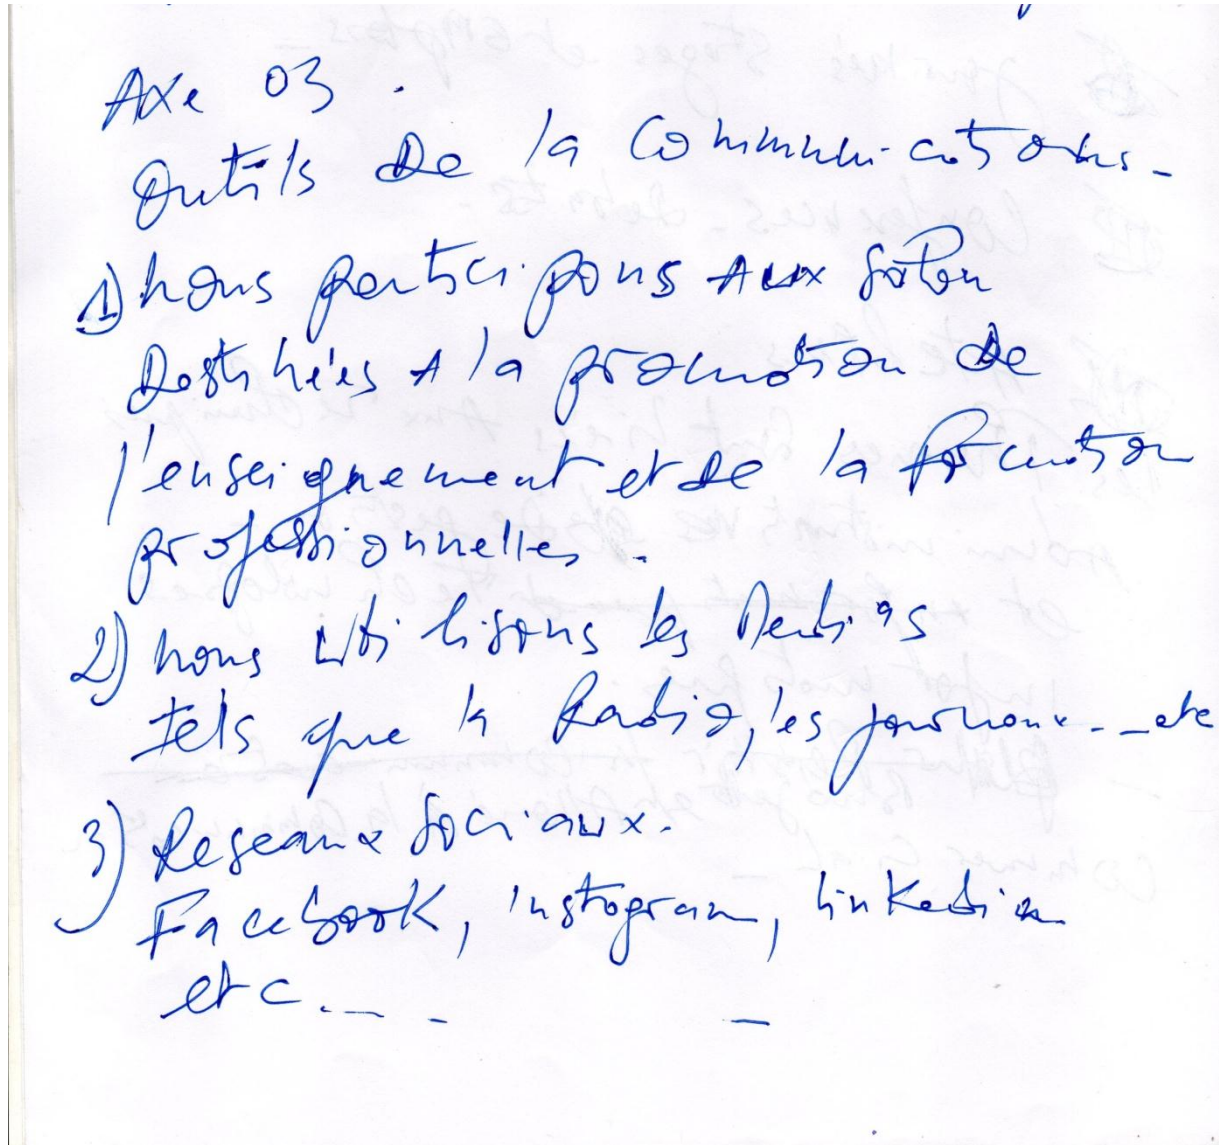 Axe 03.
Outils de la communications.
1) nous participons aux salon
Destinées A la promotion de
l'enseignement et de la formation
professionnelles.
2) nous utilisons les Medias
tels que la Radio, les journaux... etc
3) Reseaux sociaux.
Facebook, instagram, linkedin
etc...